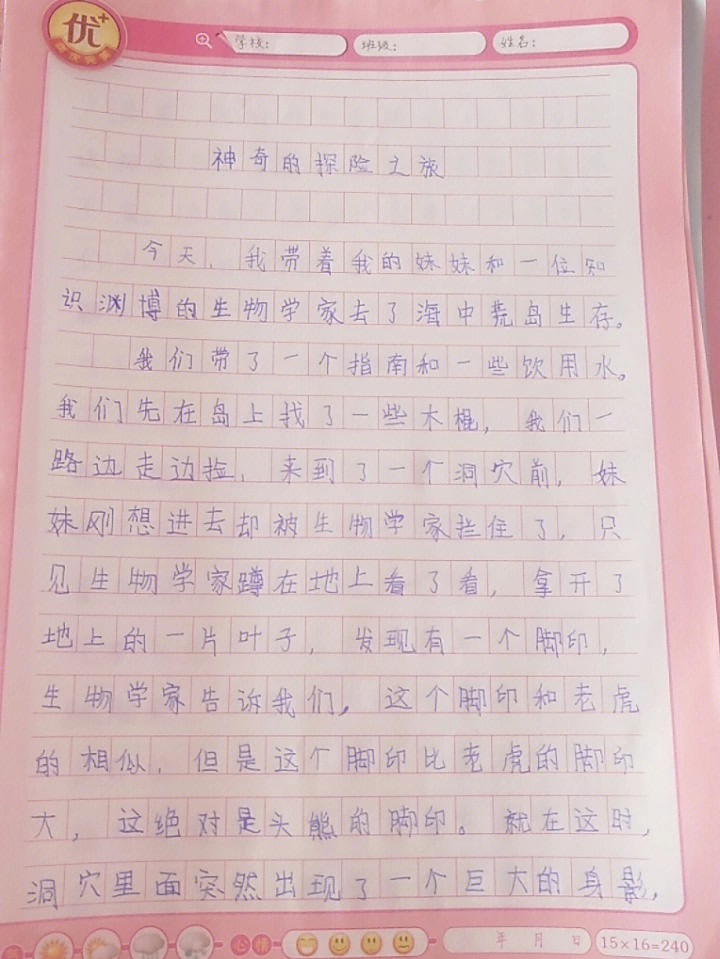 优+
学校:
班级:
姓名:
神奇的探险之旅
今天,我带着我的妹妹和一位知
识渊博的生物学家去了海中荒岛生存。
我们带了一个指南和一些饮用水。
我们先在岛上找了一些木棍,我们一
路边走边捡,来到了一个洞穴前,妹
妹刚想进去却被生物学家拦住了,只
见生物学家蹲在地上看了看,拿开了
地上的一片叶子,发现有一个脚印,
生物学家告诉我们,这个脚印和老虎
的相似,但是这个脚印比老虎的脚印
大,这绝对是头熊的脚印。就在这时,
洞穴里面突然出现了一个巨大的身影,
心情
年 月 日
15×16=240